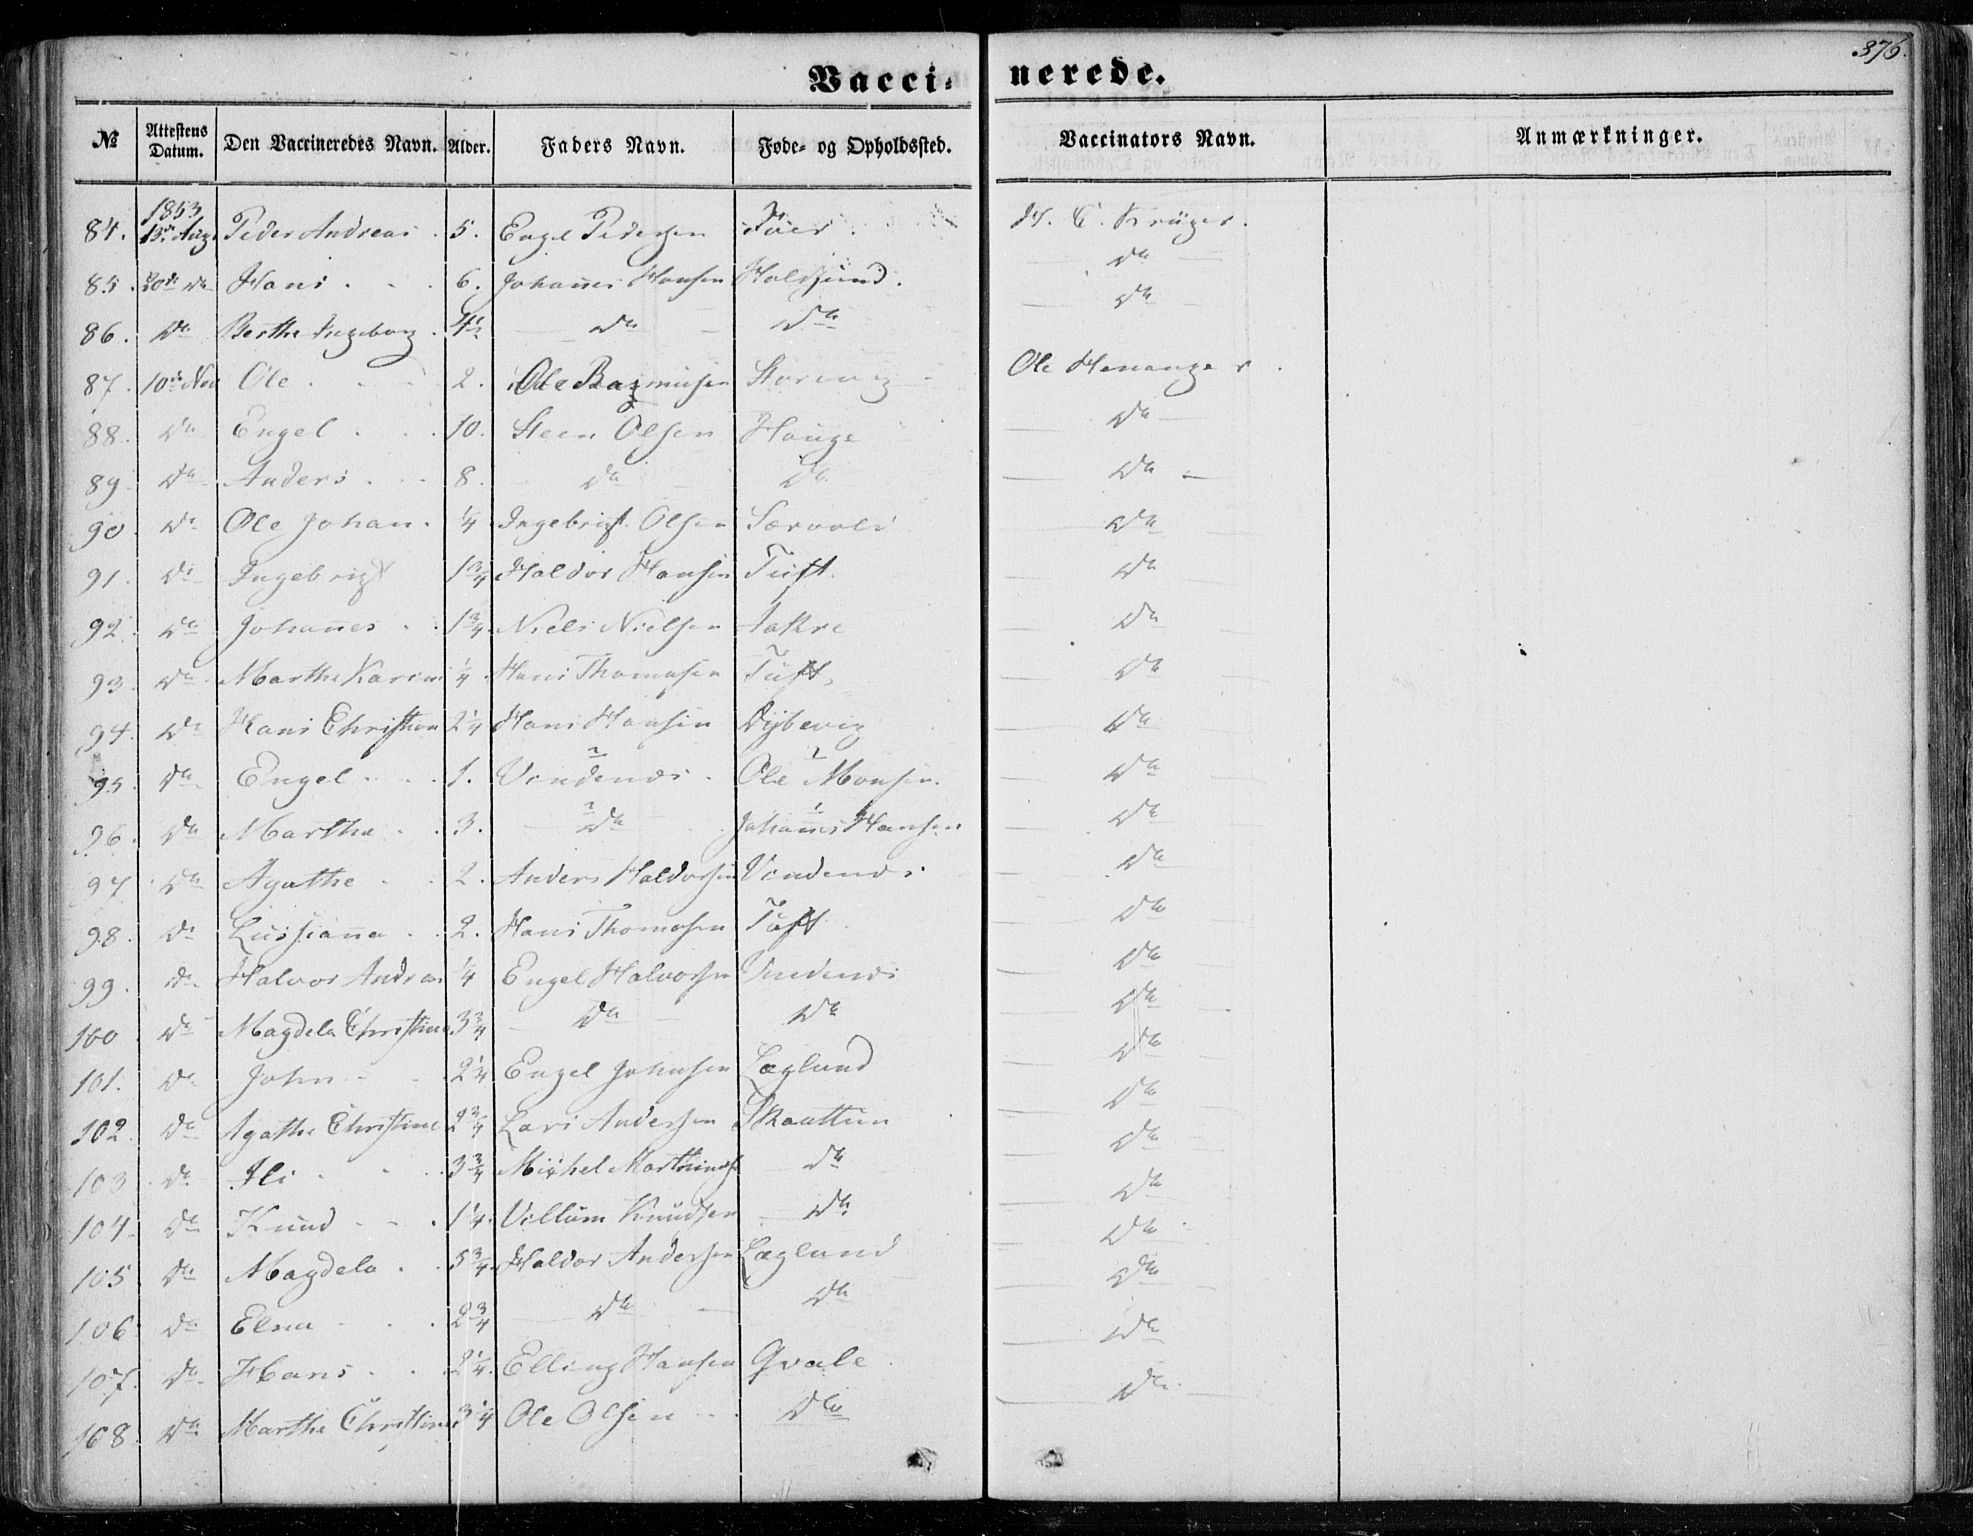 376.
Vacci- nerede.
№ Attestens Datum. Den Vaccineredes Navn. Alder. Faders Navn. Føde- og Opholdssted. Vaccinators Navn. Anmærkninger.
1853
84. 13de Aug Peder Andreas . 5. Engel Pedersen H. C. Krüger.
85. 20de do Hans . . . 6. Johannes Hansen Holdsund. do
86. do Berthe Ingeborg . 4½ do do do
87. 10de Nov Ole . . . 2. Ole Rasmusen Storevig Ole Henanger.
88. do Engel . . . 10. Steen Olsen Hauge do
89. do Anders . . . 8. do do do
90. do Ole Johan. ¼ Ingebrigt Olsen do
91. do Ingebrigt 1¾ Haldor Hansen Tuft. do
92. do Johannes . . 1¾ Niels Nielsen Aakre do
93. do Marthe Karine ¼ Hans Thomasen Tuft, do
94. do Hans Christian 2¼ Hans Hansen Dybevig do
95. do Engel . . . 1. 2 Vindenæs . 1 Ole Monsen. do
96. do Marthe . . 3. 2 do 1 Johannes Hansen do
97. do Agathe . . 2. Anders Haldorsen Vindenæs do
98. do Lussianna . . 2. Hans Thomasen Tuft do
99. do Halvor Andreas ¼ Engel Halvorsen Vindenæs do
100. do Magdela Christine 3¾ do do do
101. do John . . . 2¼ Engel Johnsen Læglund do
102. do Agathe Christine 2¾ Lars Andersen Skaattun do
103. do Ili . . . 3¾ Michel do do
104. do Knud . . . 1¼. Villum Knudsen do do
105. do Magdela . . 5¾. Haldor Andersen Læglund do
106. do Elna . . . 2¾ do do do
107. do Hans . . . 2¼. Elling Hansen Qvale do
108. do Marthe Christine 3¼ Ole Olsen do do